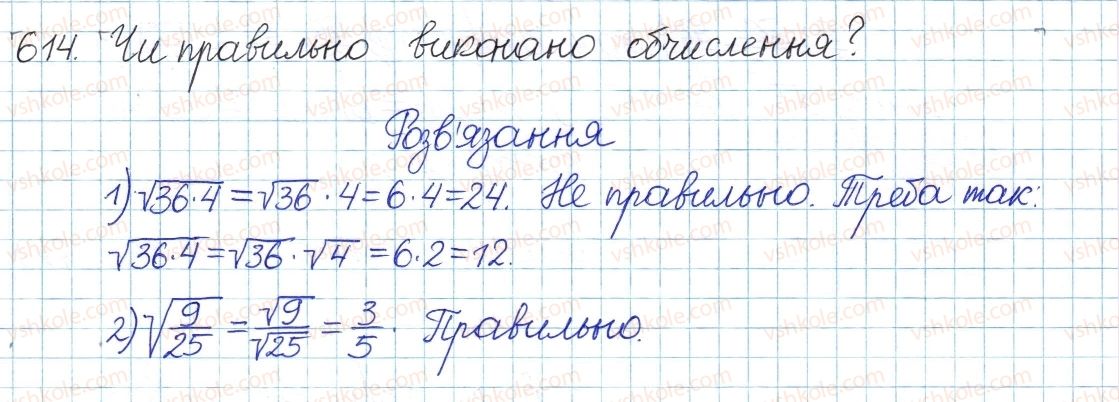 614. Чи правильно виконано обчислення?
Розв'язання
1) √36·4 = √36 · 4 = 6·4 = 24. Не правильно. Треба так:
√36·4 = √36 · √4 = 6·2 = 12.
2) √(9/25) = √9/√25 = 3/5. Правильно.